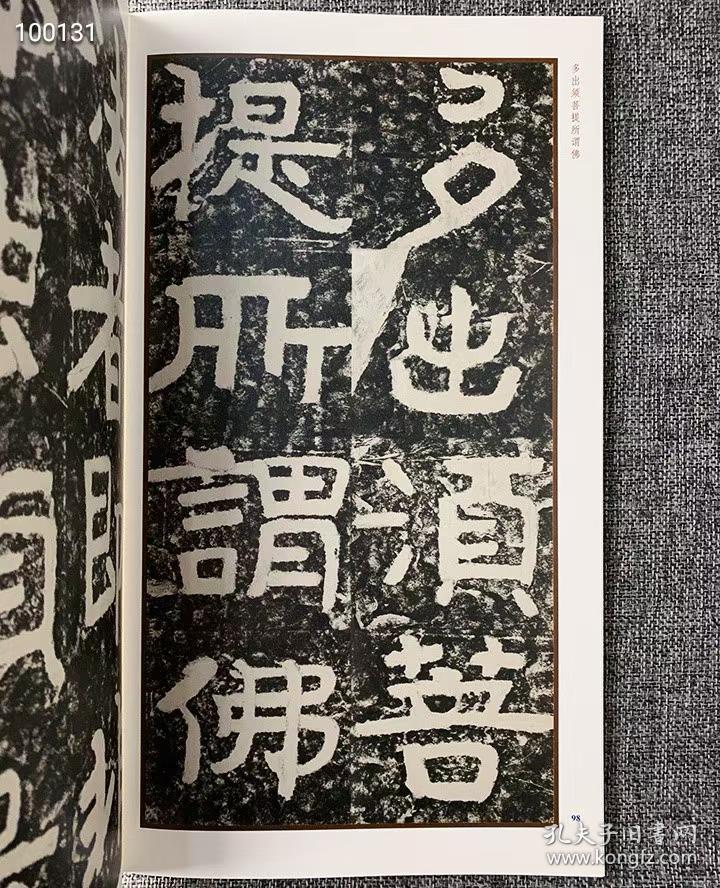 100131
多出湏菩
提所謂佛
多出须菩提所谓佛
98
孔夫子旧书网
www.kongfz.com